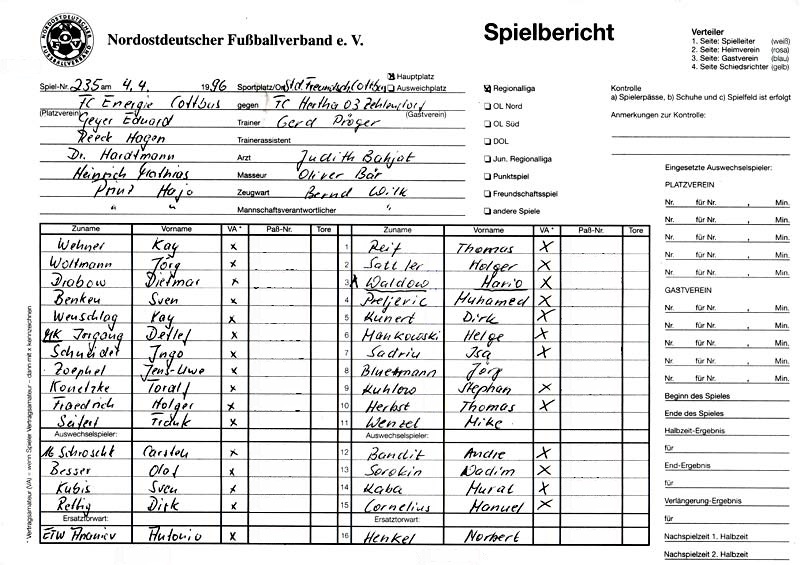 NORDOSTDEUTSCHER FUSSBALLVERBAND
NFV
Nordostdeutscher Fußballverband e. V.
Spielbericht
Verteiler
1. Seite: Spielleiter (weiß)
2. Seite: Heimverein (rosa)
3. Seite: Gastverein (blau)
4. Seite Schiedsrichter (gelb)
Spiel-Nr. 235 am 4.4. 1996 Sportplatz/Ort Std. Freundsch. Cottbus
Hauptplatz
Ausweichplatz
FC Energie Cottbus gegen FC Hertha 03 Zehlendorf
(Platzverein) (Gastverein)
Geyer Eduard Trainer Gerd Pröger
Reeck Hagen Trainerassistent
Dr. Hardtmann Arzt Judith Bahjat
Heinrich Mathias Masseur Oliver Bär
Prinz Hajo Zeugwart Bernd Wilk
" " Mannschaftsverantwortlicher "
Regionalliga
OL Nord
OL Süd
DOL
Jun. Regionalliga
Punktspiel
Freundschaftsspiel
andere Spiele
Kontrolle
a) Spielerpässe, b) Schuhe und c) Spielfeld ist erfolgt
Anmerkungen zur Kontrolle:
Zuname Vorname VA * Paß-Nr. Tore Zuname Vorname VA * Paß-Nr. Tore
Wehner Kay x 1 Reif Thomas X
Woltmann Jörg x 2 Sattler Holger X
Drabow Dietmar x 3 Waldow Mario X
Benken Sven x 4 Preljevic Muhamed X
Wenschlag Kay x 5 Kunert Dirk X
MK Irrgang Detlef x 6 Mankowski Helge X
Schneider Ingo x 7 Sadriu Isa X
Zoephel Jens-Uwe x 8 Bluetmann Jörg
Konetzke Toralf x 9 Kuhlow Stephan X
Friedrich Holger x 10 Herbst Thomas X
Seifert Frank x 11 Wenzel Mike
Auswechselspieler: Auswechselspieler:
16 Schroscht Carsten x 12 Bandit Andre X
Besser Olaf x 13 Sorokin Wadim X
Kubis Sven x 14 Kaba Murat X
Rettig Dirk x 15 Cornelius Manuel X
Ersatztorwart: Ersatztorwart:
ETW Ananiev Antonio x 16 Henkel Norbert
* Vertragsamateur (VA) = wenn Spieler Vertragsamateur – dann mit x kennzeichnen
Eingesetzte Auswechselspieler:
PLATZVEREIN
Nr. für Nr. , Min.
Nr. für Nr. , Min.
Nr. für Nr. , Min.
Nr. für Nr. , Min.
Nr. für Nr. , Min.
GASTVEREIN
Nr. für Nr. , Min.
Nr. für Nr. , Min.
Nr. für Nr. , Min.
Nr. für Nr. , Min.
Nr. für Nr. , Min.
Beginn des Spieles
Ende des Spieles
Halbzeit-Ergebnis
für
End-Ergebnis
für
Verlängerung-Ergebnis
für
Nachspielzeit 1. Halbzeit
Nachspielzeit 2. Halbzeit